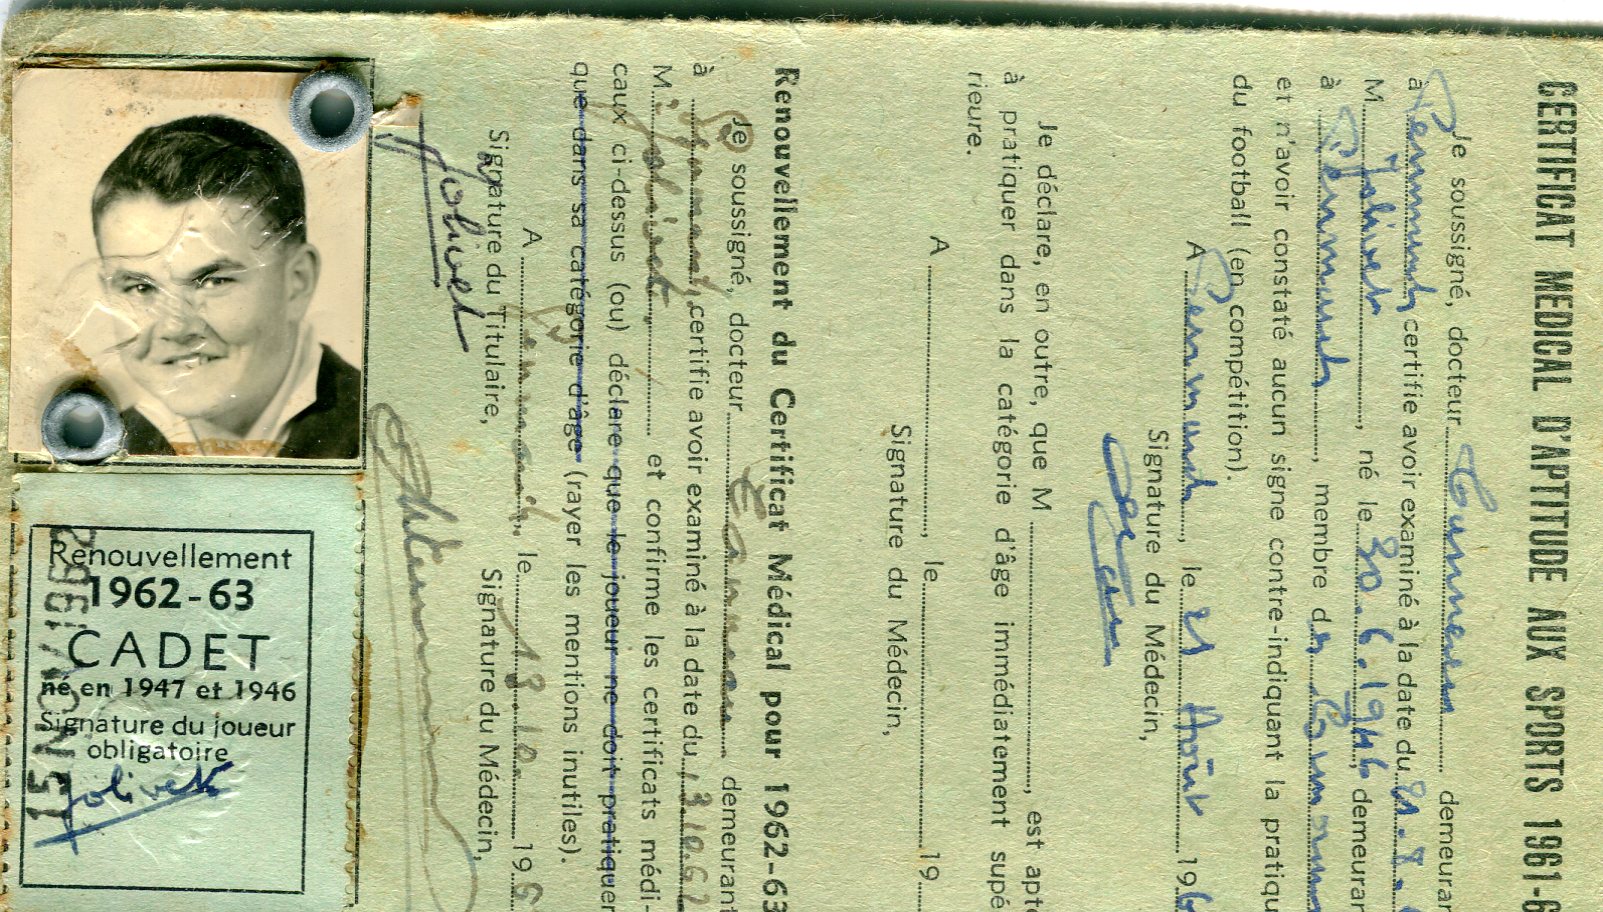 CERTIFICAT MEDICAL D'APTITUDE AUX SPORTS 1961-6
Je soussigné, docteur demeuran
à Penmarch certifie avoir examiné à la date du 21.8.
M. Jolivet, né le 30.6.1946, demeuran
à Penmarch, membre de
et n'avoir constaté aucun signe contre-indiquant la pratiqu
du football (en compétition).
A Penmarch, le 21 Août 196
Signature du Médecin,
Je déclare, en outre, que M , est apte
à pratiquer dans la catégorie d'âge immédiatement supé
rieure.
A , le 19
Signature du Médecin,
Renouvellement du Certificat Médical pour 1962-63
Je soussigné, docteur demeurant
à certifie avoir examiné à la date du 13.10.62
M. Jolivet, et confirme les certificats médi-
caux ci-dessus (ou) déclare que le joueur ne doit pratiquer
que dans sa catégorie d'âge (rayer les mentions inutiles).
A Penmarch, le 13.10. 196
Signature du Titulaire, Signature du Médecin,
Jolivet
Renouvellement
1962-63
CADET
né en 1947 et 1946
Signature du joueur
obligatoire
Jolivet
15 NOV 1962